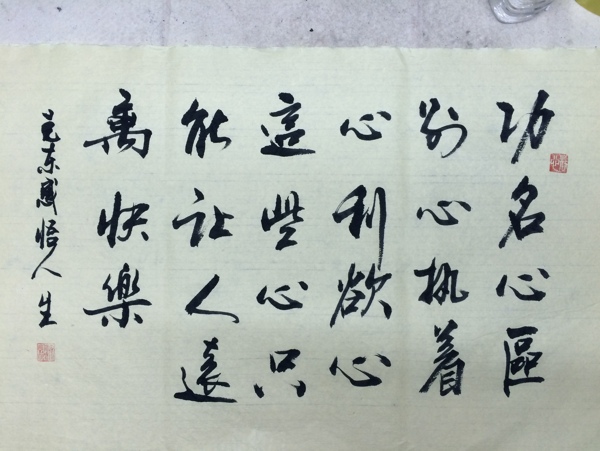 功名心區
别心执着
心利欲心
這些心只
能让人遠
离快樂
感悟人生